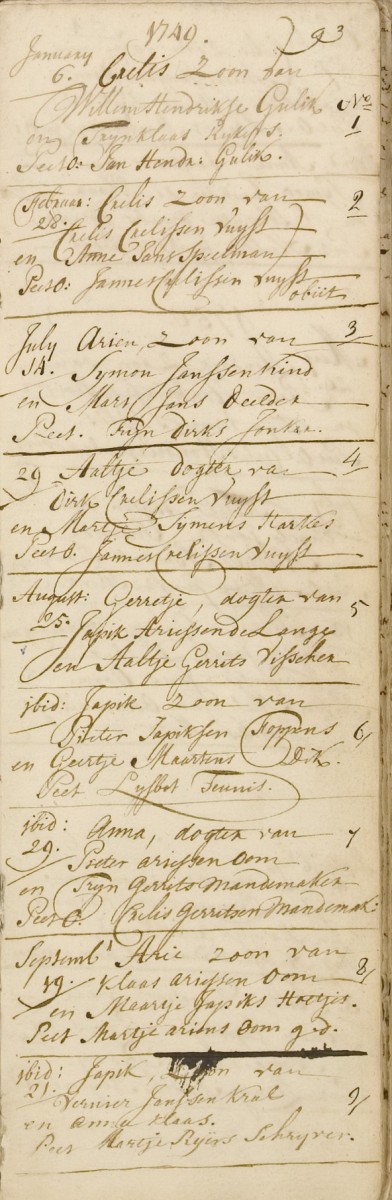 1749. 93
January
6. Crelis Zoon van
Willem Hendrikse Gulik No
en Trynklaas Rykers. 1
Peet O: Jan Hendr: Gulik.
Februar: Crelis Zoon van 2
28. Crelis Crelissen Vuyst
en Anne Jans Speelman
Peet O: Jannes Crelissen Vuyst
obiit
July Arien, Zoon van 3
14. Symon Janssen kind
en Mary Jans Deelder
Peet. Tryn Dirks
29 Aaltje dogter van 4
Dirk Crelissen Vuyst
en Martje Symens Harkes
Peet O. Jannes Crelissen Vuyst
August: Gerretje, dogter van 5
25. Japik Ariessen de Lange
en Aaltje Gerrits Visscher
ibid: Japik Zoon van
Pieter Japiksen Foppens 6
en Geertje Maartens Dik.
Peet Lysbet Teunis.
ibid: Anna, dogter van 7
29. Pieter ariessen Oom
en Tryn Gerrits Mandemaker
Peet O. Crelis Gerritsen Mandemak:
Septemb Arie zoon van
19. Klaas ariessen Oom 8
en Maartje Japiks Hottjes.
Peet Martje ariens Oom g=d.
ibid: Japik, Zoon van
21. Vernier Janssen Kral 9
en Annie Klaas.
Peet Martje Ryërs Schryver.